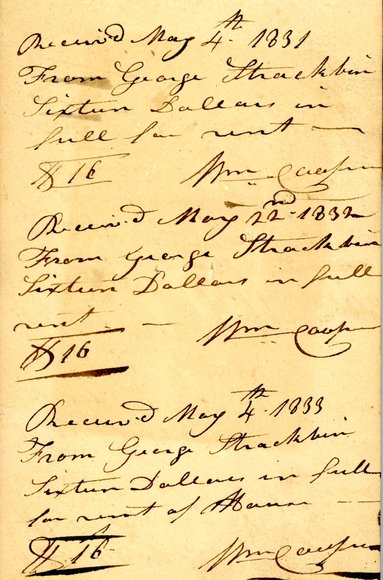 Received May 4th. 1831
From George Strackbin
Sixteen Dollars in
full for rent —
$16 Wm Cooper
Received May 22nd. 1832
From George Strackbin
Sixteen Dollars in full
rent. —
$16 Wm Cooper
Received May 4th. 1833
From George Strackbin
Sixteen Dollars in full
for rent of House —
$16 Wm Cooper